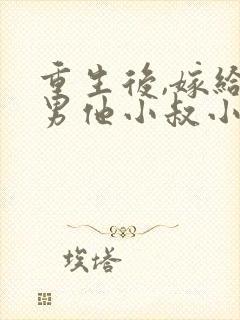 重生後,嫁給
男他小叔小
埃塔